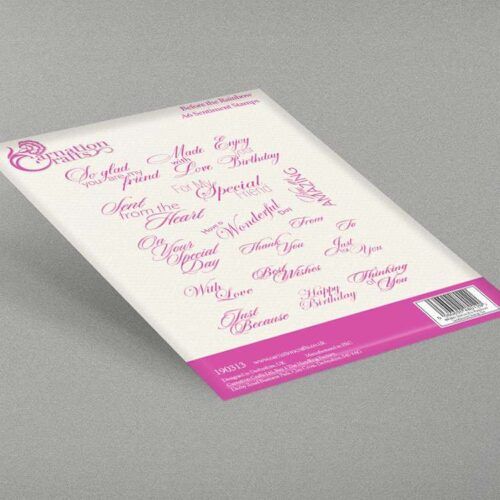 Carnation
Crafts
Before the Rainbow
A6 Sentiment Stamps
So glad
you are my
friend
Made
with
Love
Enjoy
your
Birthday
Sent
from the
Heart
For My
Special
Friend
AMAZING
Have a
Wonderful
Day
On
Your
Special
Day
Thank
You
From
To
Just
You
Best
Wishes
With
Love
Just
Because
Happy
Birthday
Thinking
of You
190313
www.carnationcrafts.co.uk
Designed in Derbyshire, UK
Manufactured in PRC